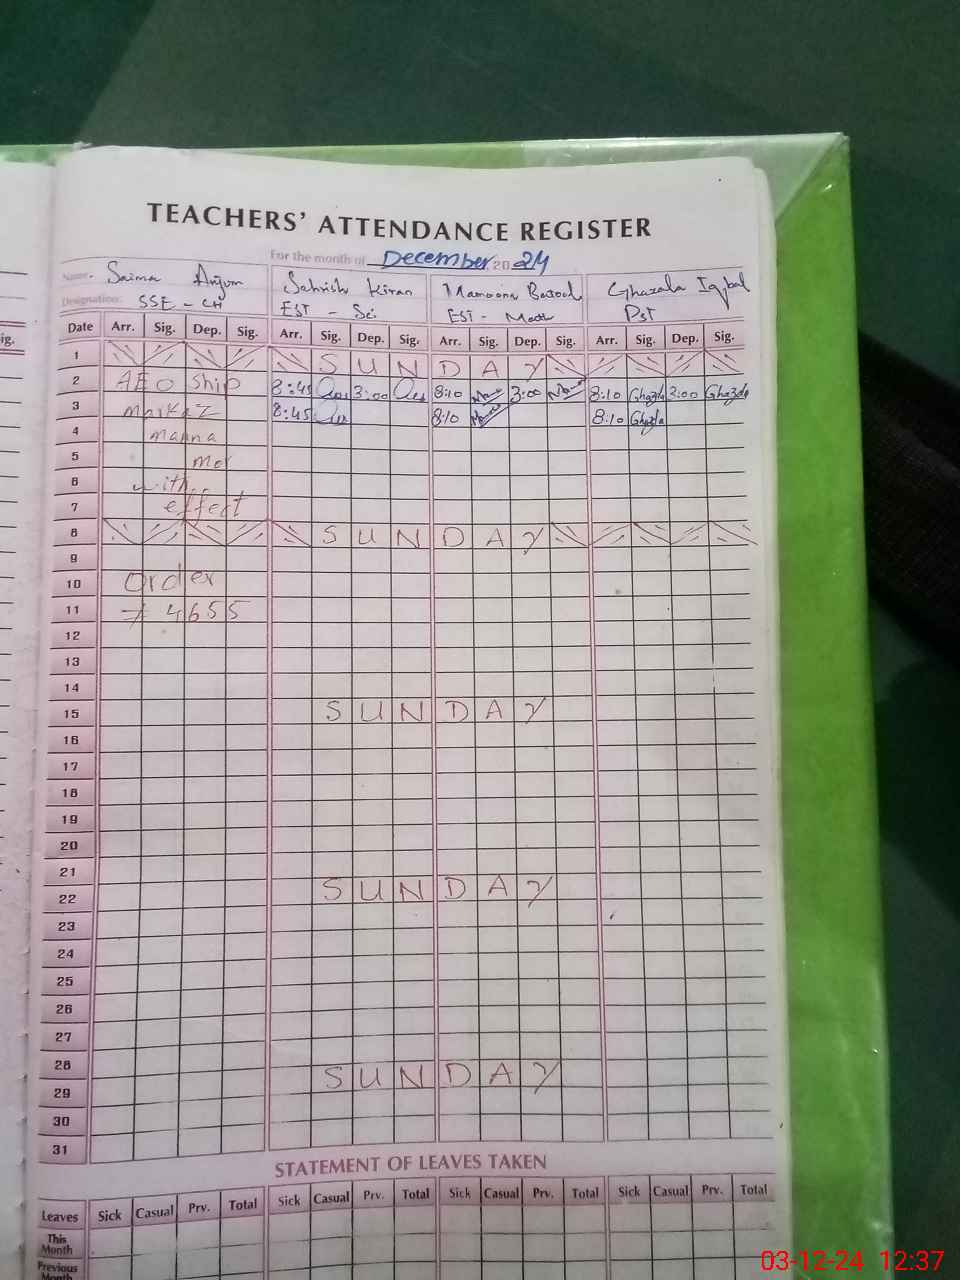 TEACHERS' ATTENDANCE REGISTER
For the month of December 2024
Name. Saima Anjum Sehrish Kiran Mamoona Batool Ghazala Iqbal
Designation: SSE - CH EST - Sci EST - Math PST
Date Arr. Sig. Dep. Sig. Arr. Sig. Dep. Sig. Arr. Sig. Dep. Sig. Arr. Sig. Dep. Sig.
ig.
1 SUNDAY
2 AEO Ship 8:45 3:00 8:10 3:00 8:10 Ghazla 3:00 Ghazala
3 markaz 8:45 8:10 8:10 Ghazla
4 manna
5 mor
6 with
7 effect
8 SUNDAY
9
10 Order
11 ≠ 4655
12
13
14
15 SUNDAY
16
17
18
19
20
21
22 SUNDAY
23
24
25
26
27
28
29 SUNDAY
30
31
STATEMENT OF LEAVES TAKEN
Leaves Sick Casual Prv. Total Sick Casual Prv. Total Sick Casual Prv. Total Sick Casual Prv. Total
This Month
Previous Month
03-12-24 12:37